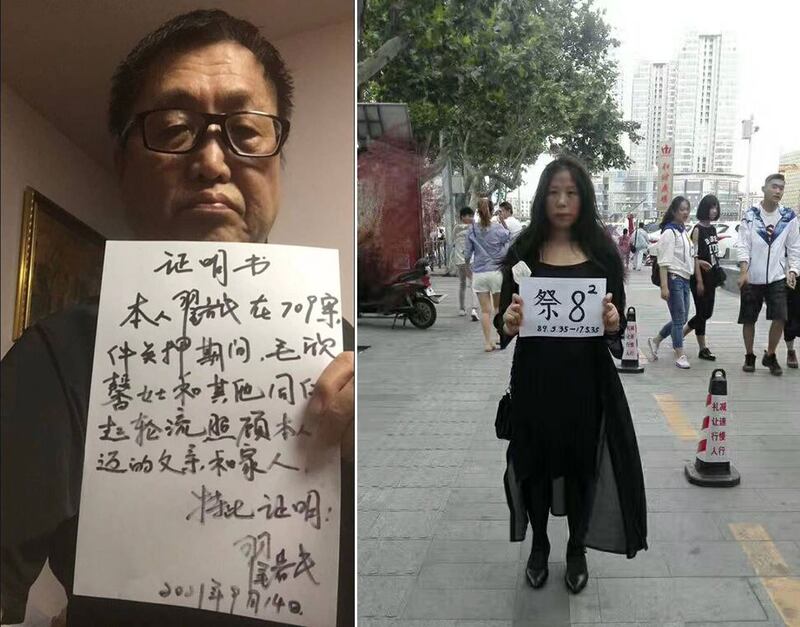 证明书
本人翟岩民在709案
件关押期间,毛欣
馨女士和其他同仁
起轮流照顾本人
迈的父亲和家人,
特此证明:
翟岩民
2021年9月14日
祭 8²
89.5.35-17.5.35
减速慢行
礼让行人